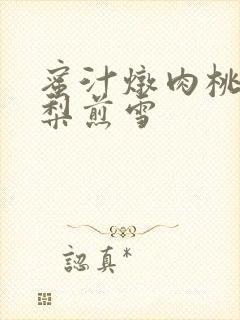 蜜汁燉肉桃
梨煎雪
認真*